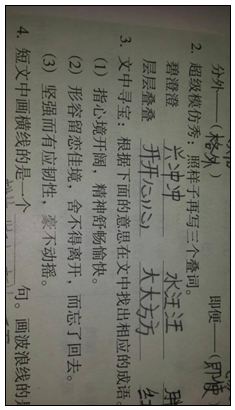 分外——(格外) 即便——(即使)
2. 超级模仿秀:照样子再写三个叠词。
碧澄澄 兴冲冲 水汪汪 胖
层层叠叠 开开心心 大大方方
3. 文中寻宝:根据下面的意思在文中找出相应的成语。
(1) 指心境开阔,精神舒畅愉快。
(2) 形容留恋佳境,舍不得离开,而忘了回去。
(3) 坚强而有应韧性,豪不动摇。
4. 短文中画横线的是一个 句。画波浪线的是